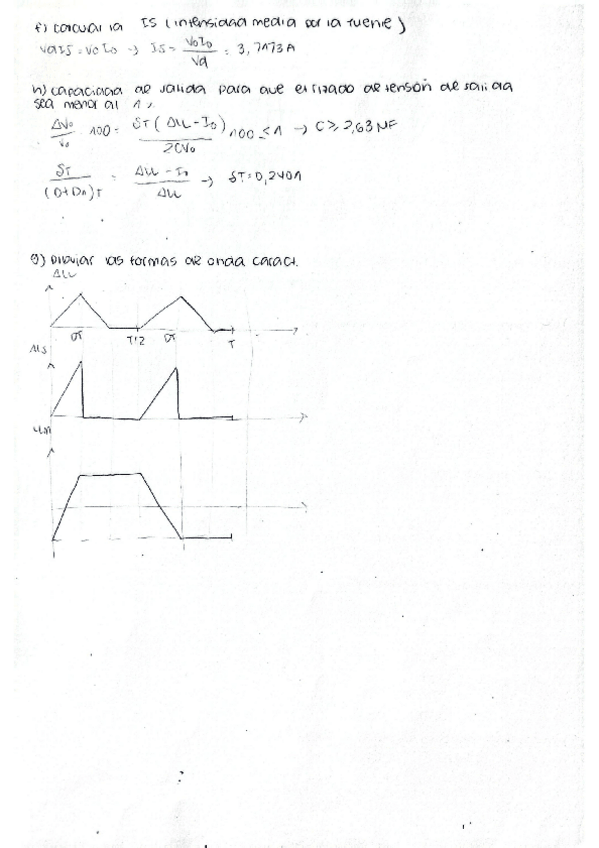 f) calcular la IS (intensidad media por la fuente)
VdIS = VoIo → IS = VoIo / Vd = 3,7173A
h) capacidad de salida para que el rizado de tensión de salida
sea menor al 1%
ΔVo / Vo · 100 = δT(ΔiL - Io) / 2CVo · 100 ≤ 1 → C ≥
δT / (D+D1)T = ΔiL - Io / ΔiL → δT = 0,2401
g) Dibujar las formas de onda caract.
ΔiL
DT T/2 DT T
ΔiS